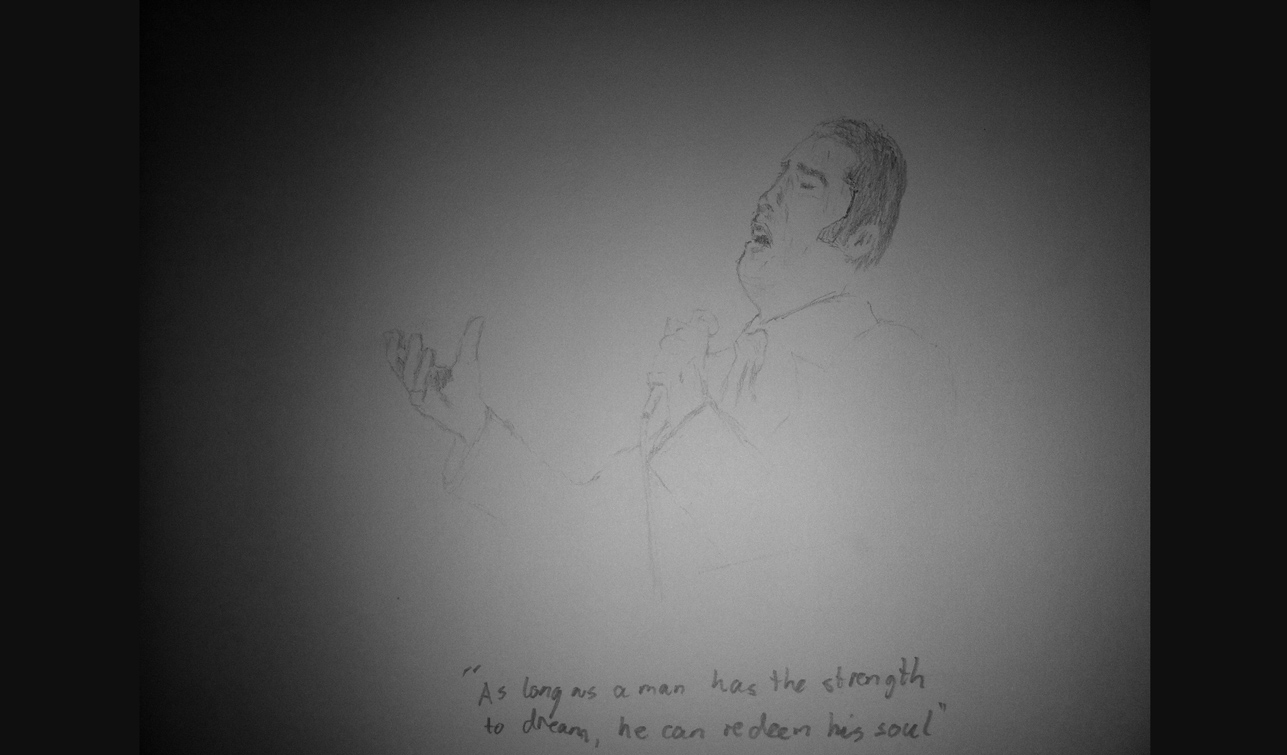 "As long as a man has the strength
to dream, he can redeem his soul"